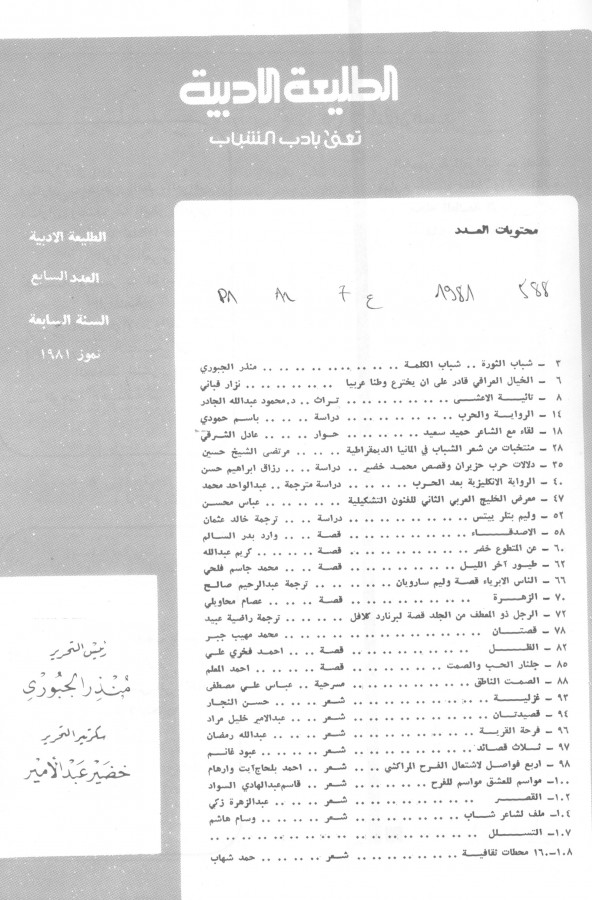 الطليعة الادبية
تعنى بادب الشباب
الطليعة الادبية
العدد السابع
السنة السابعة
تموز ١٩٨١
محتويات العدد
588 1981 ع 7
٣ - شباب الثورة .. شباب الكلمة .. .. .. .. .. .. .. .. منذر الجبوري
٦ - الخيال العراقي قادر على ان يخترع وطنا عربيا .. .. .. .. .. نزار قباني
٨ - تائية الاعشى .. .. .. .. .. .. .. تراث .. د.محمود عبدالله الجادر
١٤ - الرواية والحرب .. .. .. .. .. .. دراسة .. .. .. باسم حمودي
١٨ - لقاء مع الشاعر حميد سعيد .. .. .. .. حوار .. .. .. عادل الشرقي
٢٨ - منتخبات من شعر الشباب في المانيا الديمقراطية .. .. .. مرتضى الشيخ حسين
٣٥ - دلالات حرب حزيران وقصص محمد خضير .. دراسة .. .. رزاق ابراهيم حسن
٤٠ - الرواية الانكليزية بعد الحرب .. .. .. دراسة مترجمة .. عبدالواحد محمد
٤٧ - معرض الخليج العربي الثاني للفنون التشكيلية .. .. .. .. .. عباس محسن
٥٢ - وليم بتلر ييتس .. .. .. .. .. .. دراسة .. .. ترجمة خالد عثمان
٥٨ - الاصدقاء .. .. .. .. .. .. .. قصة .. .. وارد بدر السالم
٦٠ - عن المتطوع خضر .. .. .. .. .. .. قصة .. .. .. كريم عبدالله
٦٢ - طيور آخر الليل .. .. .. .. .. .. قصة .. .. محمد جاسم فلحي
٦٦ - الناس الابرياء قصة وليم سارويان .. .. .. .. .. ترجمة عبدالرحيم صالح
٧٠ - الزهرة .. .. .. .. .. .. .. قصة .. .. .. عصام محاويلي
٧٢ - الرجل ذو المعطف من الجلد قصة لبرنارد كلافل .. .. .. ترجمة راضية عبيد
٧٨ - قصتان .. .. .. .. .. .. .. .. .. .. .. محمد مهيب جبر
٨٢ - الظل .. .. .. .. .. .. .. قصة .. .. احمد فخري علي
٨٥ - جلنار الحب والصمت .. .. .. .. .. قصة .. .. .. احمد المعلم
٨٨ - الصمت الناطق .. .. .. .. .. .. مسرحية .. عباس علي مصطفى
٩٣ - غزلية .. .. .. .. .. .. .. شعر .. .. .. حسن النجار
٩٤ - قصيدتان .. .. .. .. .. .. .. شعر .. .. عبدالامير خليل مراد
٩٦ - فرحة القرية .. .. .. .. .. .. شعر .. .. عبدالله رمضان
٩٧ - ثلاث قصائد .. .. .. .. .. .. شعر .. .. .. عبود غانم
٩٨ - اربع فواصل لاشتعال الفرح المراكشي .. .. شعر .. احمد بلحاج آيت وارهام
١٠٠ - مواسم للعشق مواسم للفرح .. .. .. شعر .. قاسم عبدالهادي السواد
١٠٢ - القصر .. .. .. .. .. .. .. شعر .. .. .. عبدالزهرة زكي
١٠٤ - ملف لشاعر شاب .. .. .. .. .. شعر .. .. .. وسام هاشم
١٠٧ - التسلل .. .. .. .. .. .. .. .. .. .. .. ..
١٠٨-١٦٠ محطات ثقافية .. .. .. .. .. شعر .. .. .. حمد شهاب
رئيس التحرير
منذر الجبوري
سكرتير التحرير
خضير عبدالامير